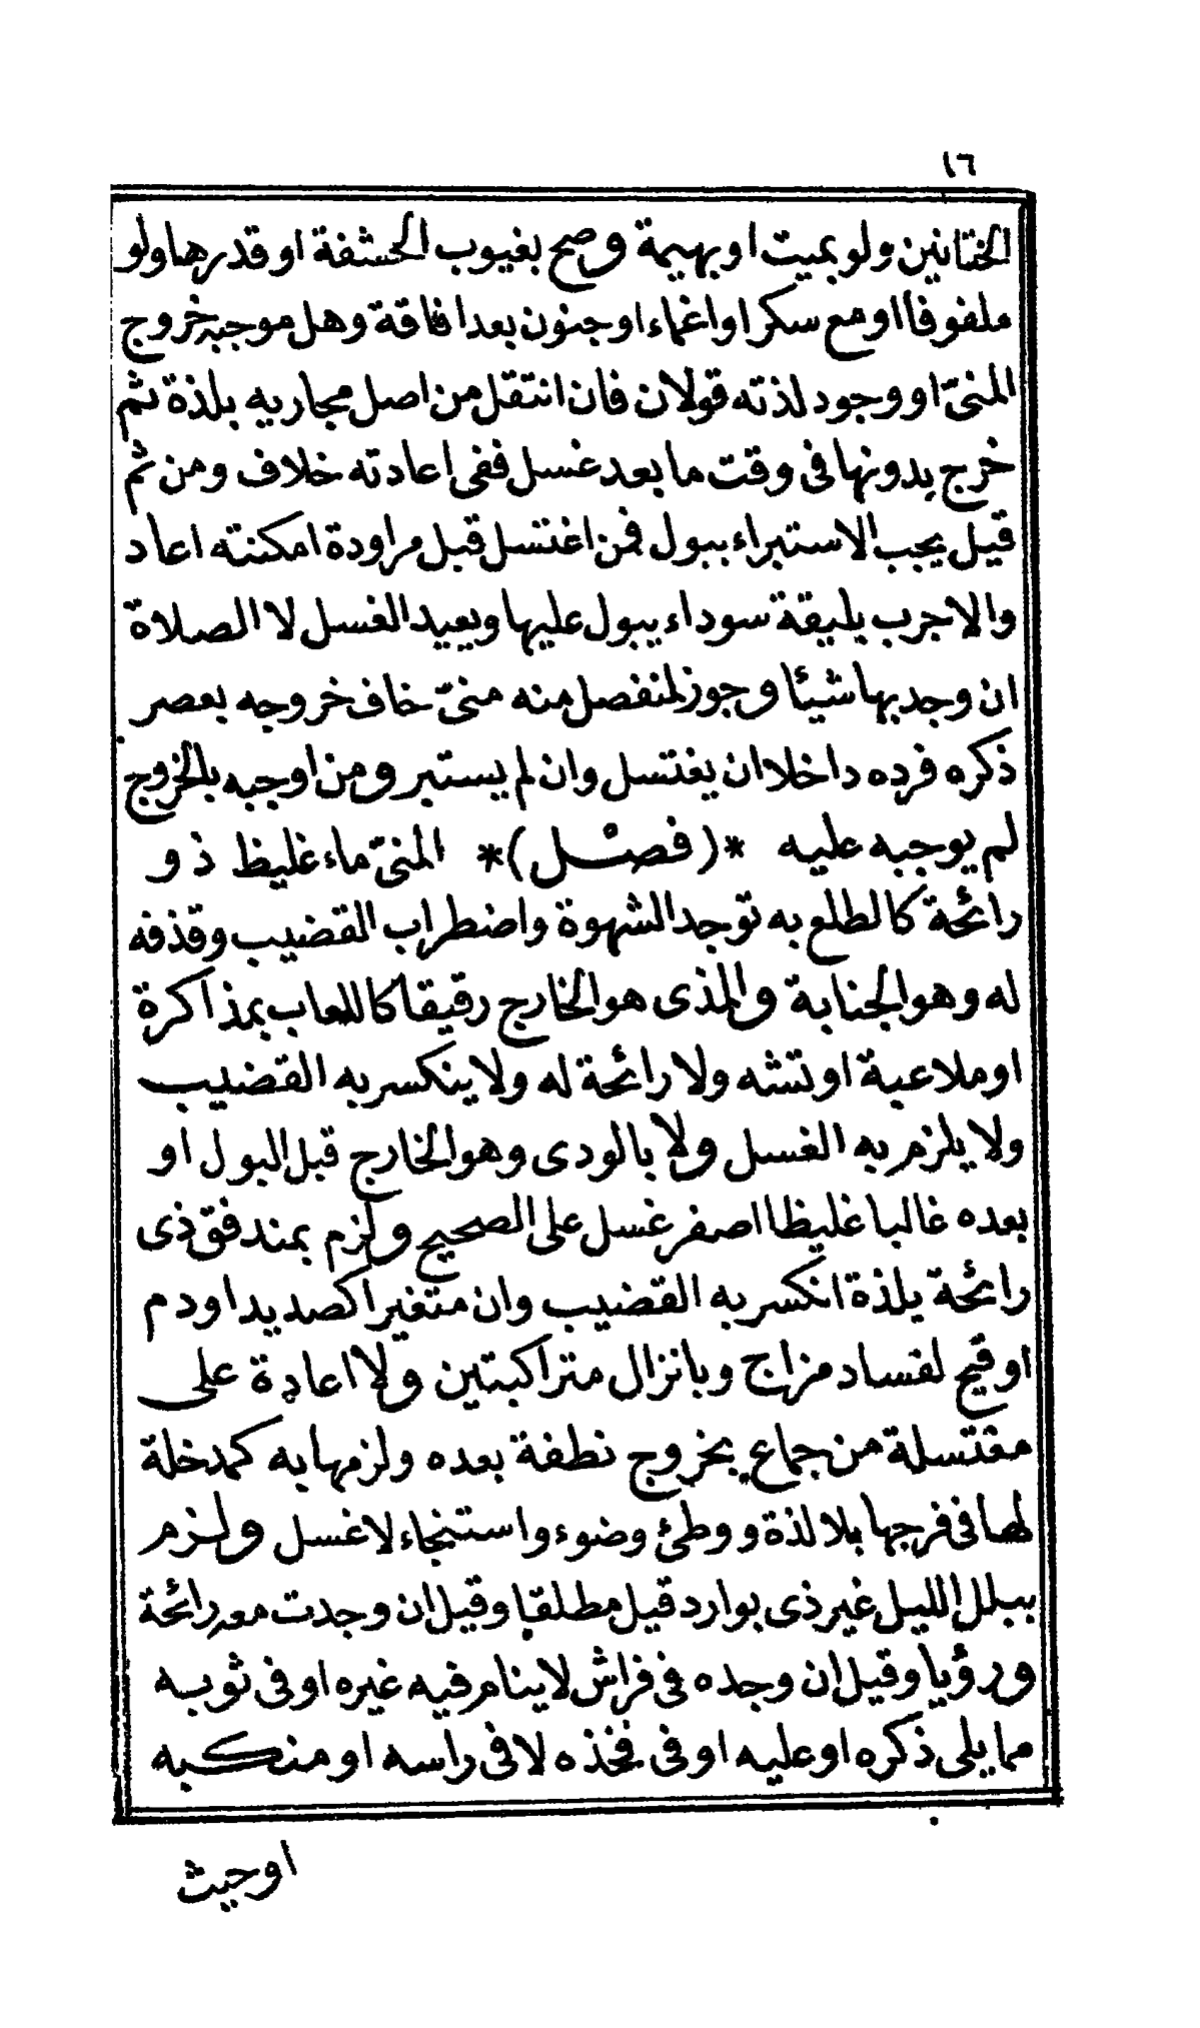 ١٦
الختانين ولو بميت او بهيمة وصح بغيوب الحشفة او قدرها ولو
ملفوفاً او مع سكر او اغماء او جنون بعد افاقة وهل موجبه خروج
المنىّ او وجود لذته قولان فان انتقل من اصل مجاريه بلذة ثم
خرج بدونها فى وقت ما بعد غسل ففى اعادته خلاف ومن ثم
قيل يجب الاستبراء ببول فمن اغتسل قبل مراودة امكنته اعاد
والاجرب بليقة سوداء يبول عليها ويعيد الغسل لا الصلاة
ان وجد بها شيئا وجوز لمنفصل منه منىّ خاف خروجه بعصر
ذكره فرده داخلا ان يغتسل وان لم يستبر ومن اوجبه بالخروج
لم يوجبه عليه *(فصل)* المنىّ ماء غليظ ذو
رائحة كالطلع به توجد الشهوة واضطراب القضيب وقذفه
له وهو الجنابة والمذى هو الخارج رقيقا كاللعاب بمذاكرة
او ملاعبة او تشه ولا رائحة له ولا ينكسر به القضيب
ولا يلزم به الغسل ولا بالودى وهو الخارج قبل البول او
بعده غالبا غليظا اصفر غسل على الصحيح ولزم بمندفق ذى
رائحة بلذة انكسر به القضيب وان متغيرا كصديد او دم
او قيح لفساد مزاج وبانزال متراكبتين ولا اعادة على
مغتسلة من جماع بخروج نطفة بعده ولزمها به كمدخلة
لها فى فرجها بلا لذة ووطئ وضوء واستنجاء لا غسل ولزم
ببلل الليل غير ذى بوارد قيل مطلقا وقيل ان وجدت معه رائحة
ورؤيا وقيل ان وجده فى فراش لا ينام فيه غيره او فى ثوبه
مما يلى ذكره او عليه او فى فخذه لا فى راسه او منكبه
او حيث